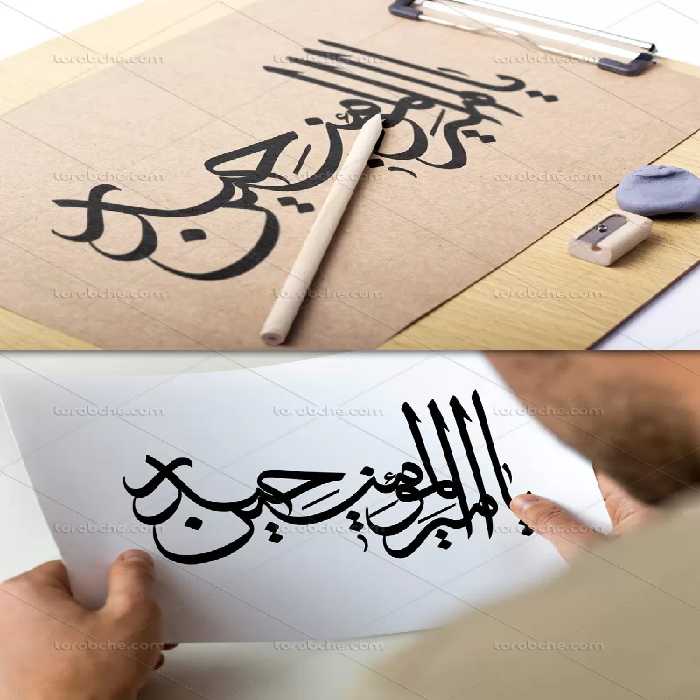 torobche.com torobche.com torobche.com
یا امیرالمؤمنین حیدر
torobche.com torobche.com torobche.com
torobche.com torobche.com torobche.com
torobche.com torobche.com torobche.com
یا امیرالمؤمنین حیدر
torobche.com torobche.com torobche.com
torobche.com torobche.com torobche.com